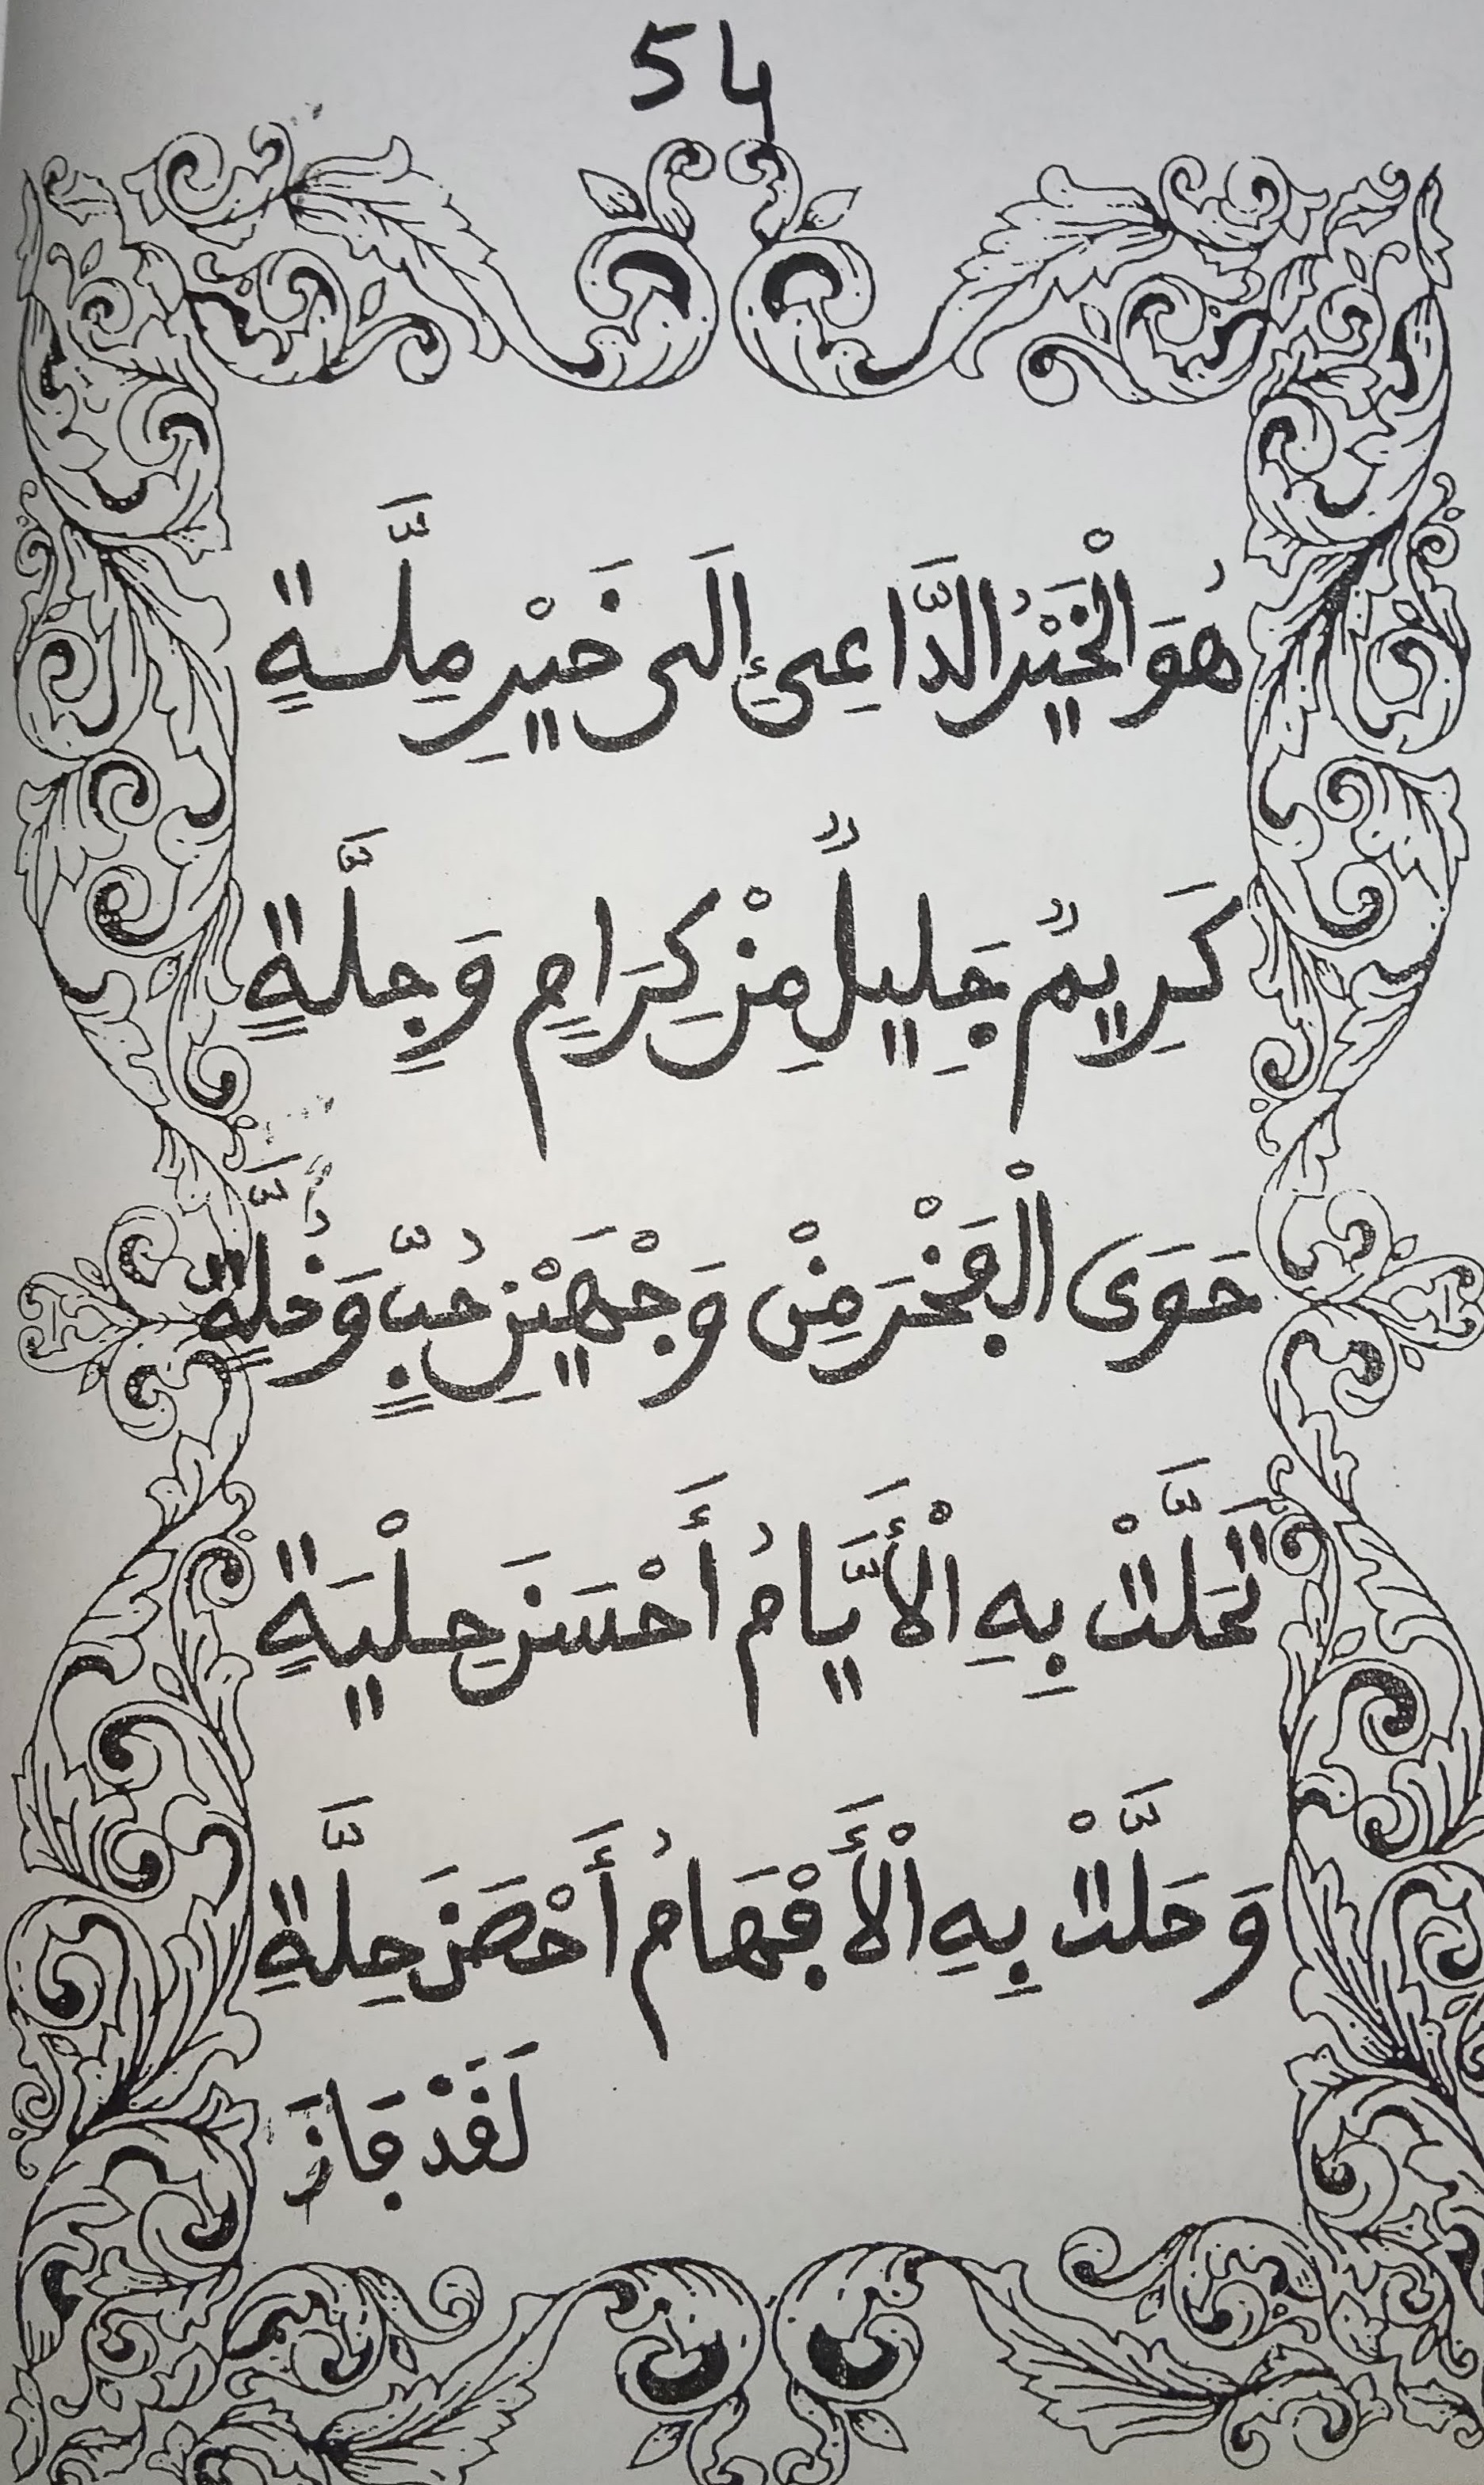 54
هُوَ الْخَيْرُ الدَّاعِي إِلَى خَيْرِ مِلَّةٍ
كَرِيمٌ جَلِيلٌ مِنْ كِرَامٍ وَجِلَّةٍ
حَوَى الْفَخْرَ مِنْ وَجْهَيْنِ حُبٍّ وَخُلَّةٍ
تَحَلَّتْ بِهِ الْأَيَّامُ أَحْسَنَ حِلْيَةٍ
وَحَلَّتْ بِهِ الْأَفْهَامُ أَحْصَنَ حِلَّةِ
لَقَدْ فَازَ